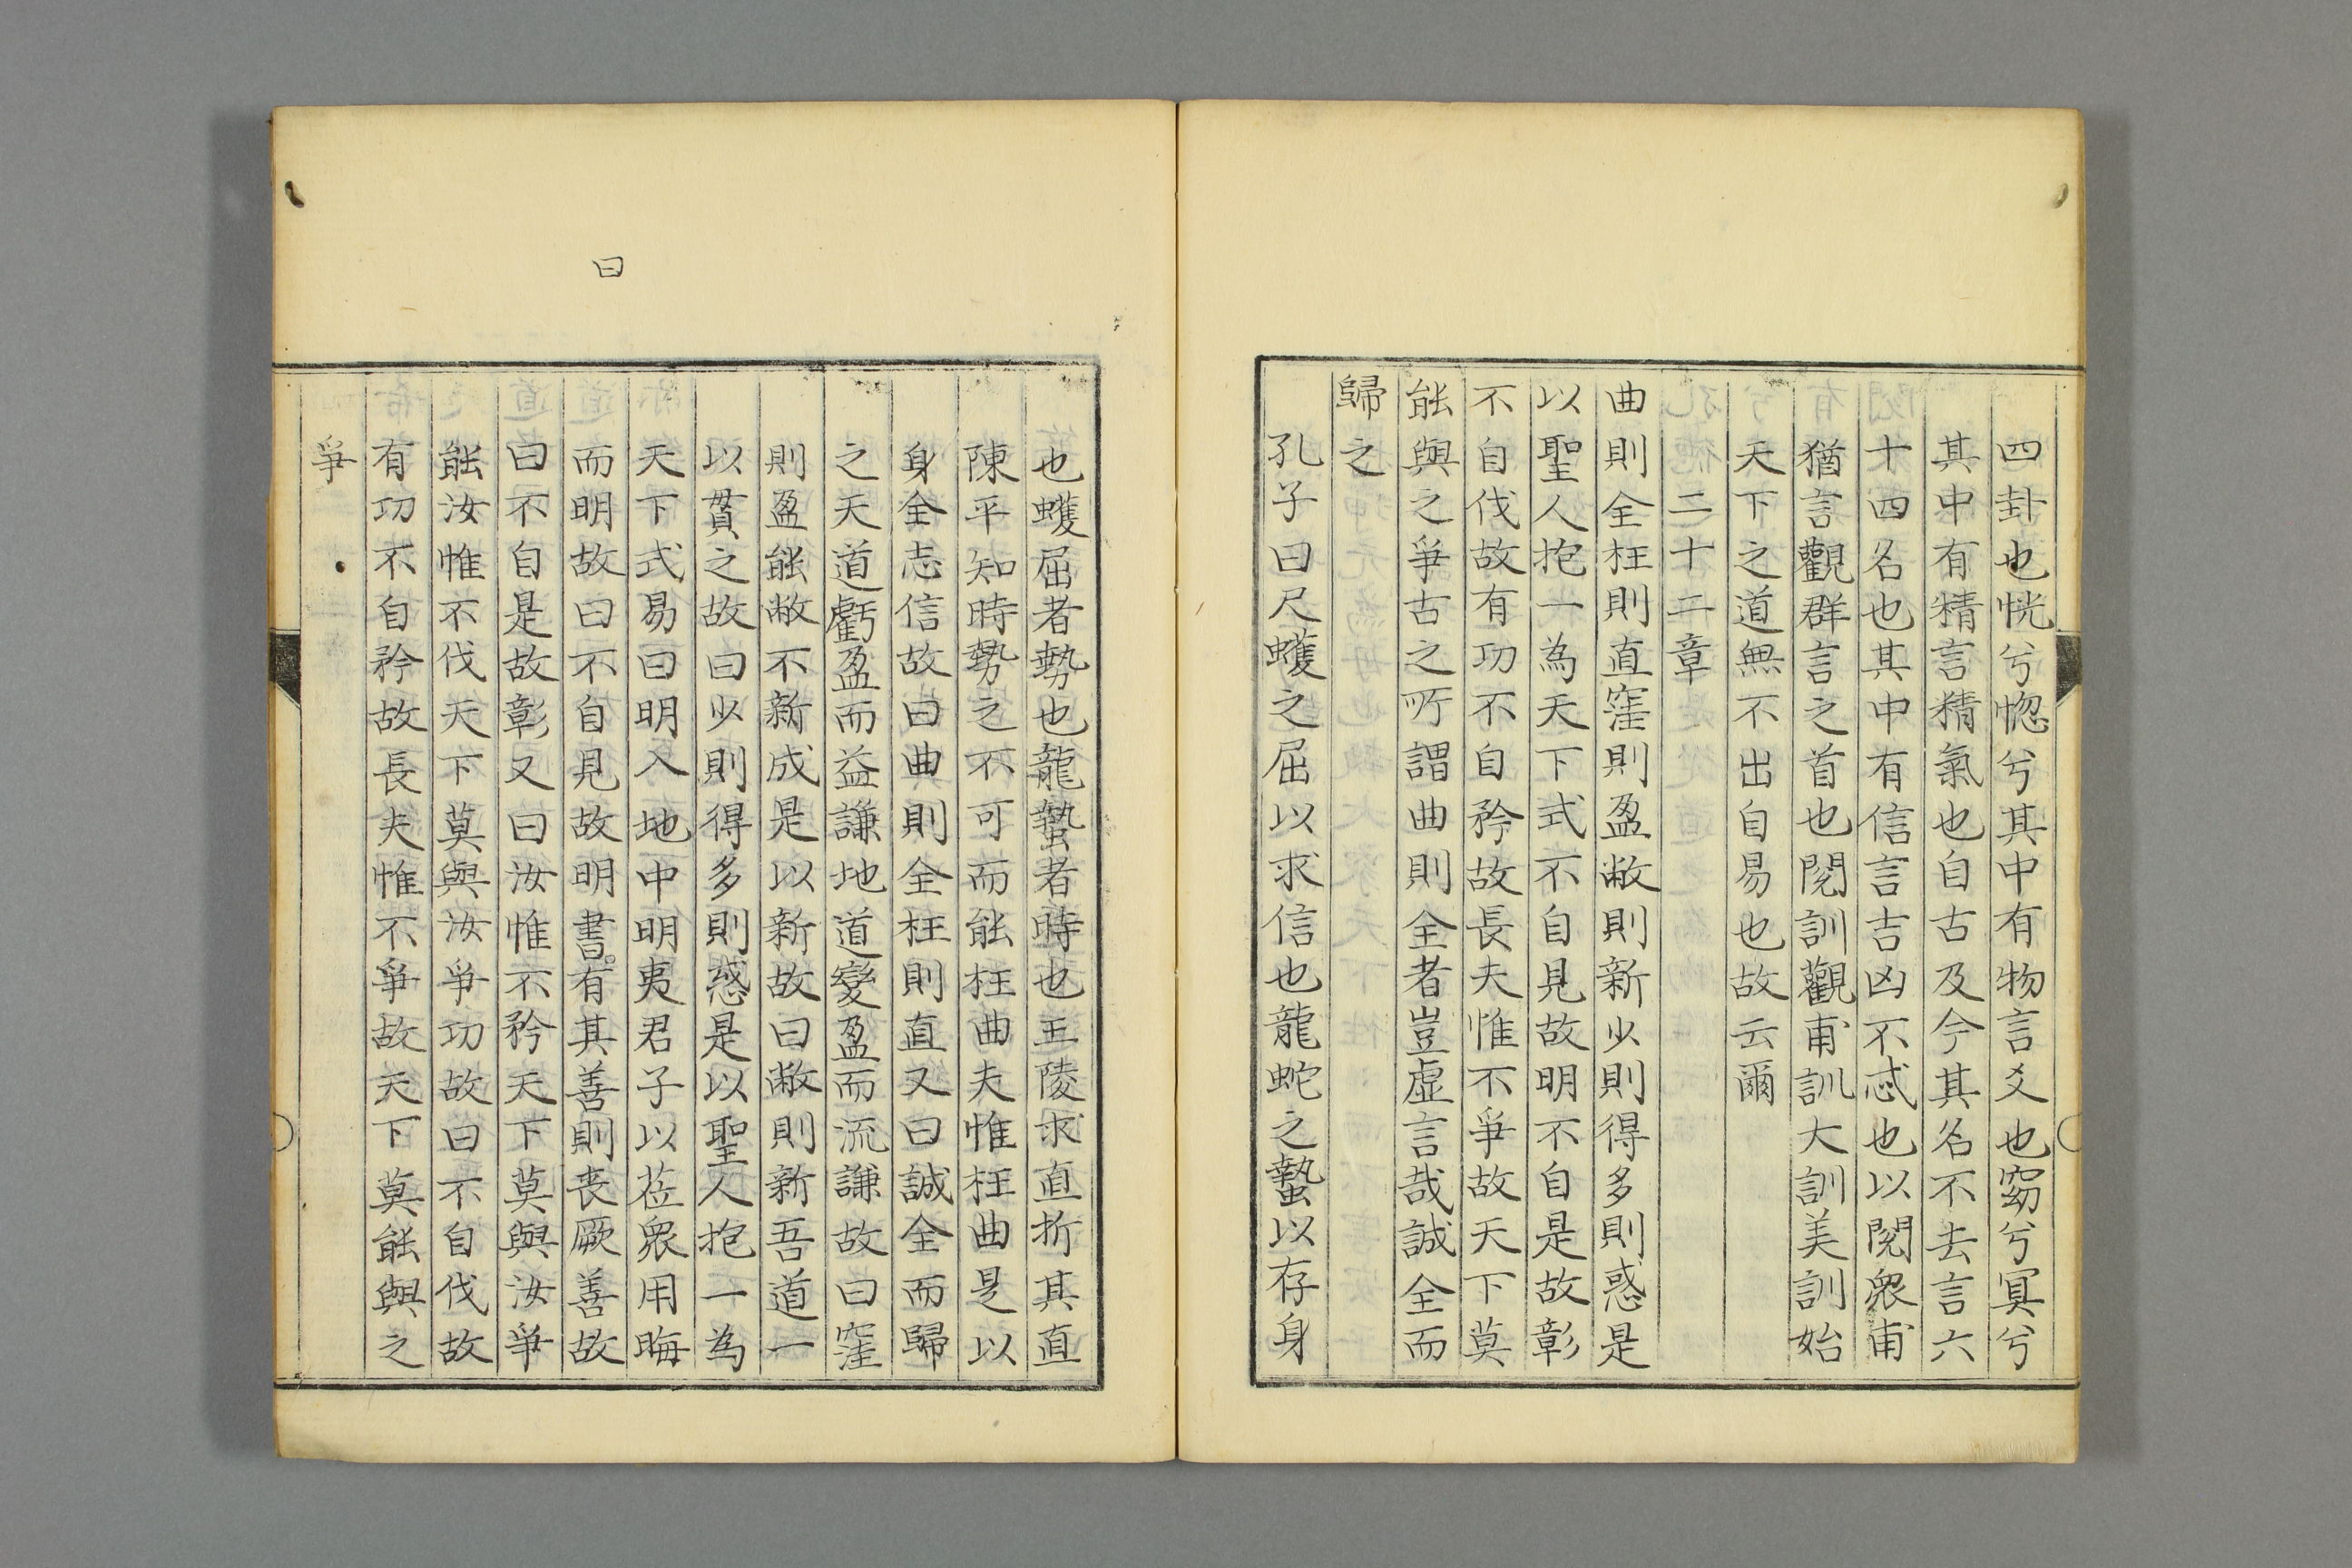 四卦也恍兮惚兮其中有物言爻也窈兮冥兮
其中有精言精氣也自古及今其名不去言六
十四名也其中有信言吉凶不忒也以閱眾甫
猶言觀群言之首也閱訓觀甫訓大訓美訓始
天下之道無不出自易也故云爾
二十二章
曲則全枉則直窪則盈敝則新少則得多則惑是
以聖人抱一為天下式不自見故明不自是故彰
不自伐故有功不自矜故長夫惟不爭故天下莫
能與之爭古之所謂曲則全者豈虛言哉誠全而
歸之
孔子曰尺蠖之屈以求信也龍蛇之蟄以存身
也蠖屈者勢也龍蟄者時也王陵求直折其直
陳平知時勢之不可而能枉曲夫惟枉曲是以
身全志信故曰曲則全枉則直又曰誠全而歸
之天道虧盈而益謙地道變盈而流謙故曰窪
則盈能敝不新成是以新故曰敝則新吾道一
以貫之故曰少則得多則惑是以聖人抱一為
天下式易曰明入地中明夷君子以莅眾用晦
而明故曰不自見故明書。有其善則丧厥善故
曰不自是故彰又曰汝惟不矜天下莫與汝爭
能汝惟不伐天下莫與汝爭功故曰不自伐故
有功不自矜故長夫惟不爭故天下莫能與之
爭
曰